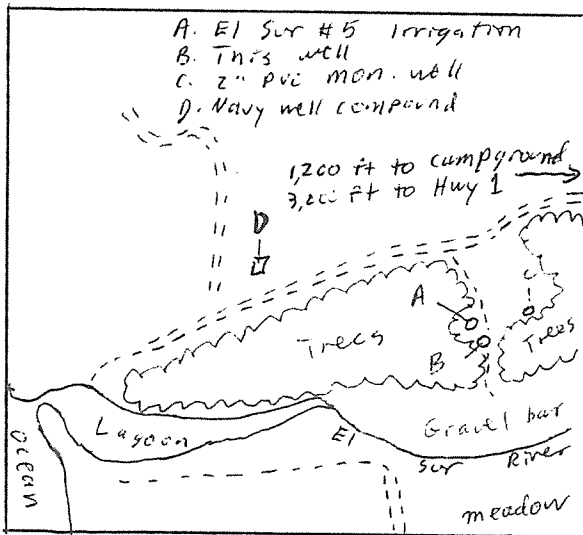 A. El Sur #5 Irrigation
B. This well
C. 2" PVC mon. well
D. Navy well compound
1,200 ft to campground
3,200 ft to Hwy 1
D
A
C
Trees
B
Trees
Lagoon
El
Sur
River
Gravel bar
Ocean
meadow